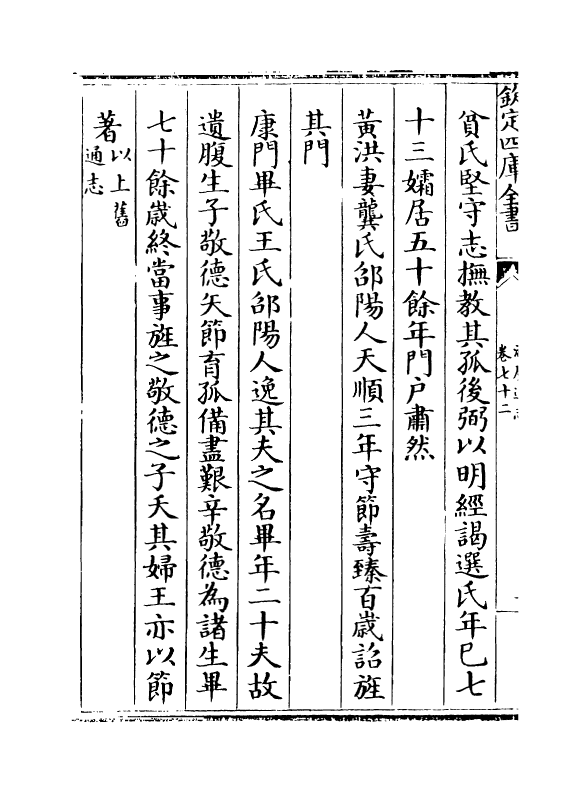 欽定四庫全書
卷七十二
貧氏堅守志撫教其孤後弼以明經謁選氏年已七
十三孀居五十餘年門户肅然
黃洪妻龔氏郃陽人天順三年守節壽臻百歲詔旌
其門
康門畢氏王氏郃陽人逸其夫之名畢年二十夫故
遺腹生子敬德矢節育孤備盡艱辛敬德為諸生畢
七十餘歲終當事旌之敬德之子夭其婦王亦以節
著以上舊
通志